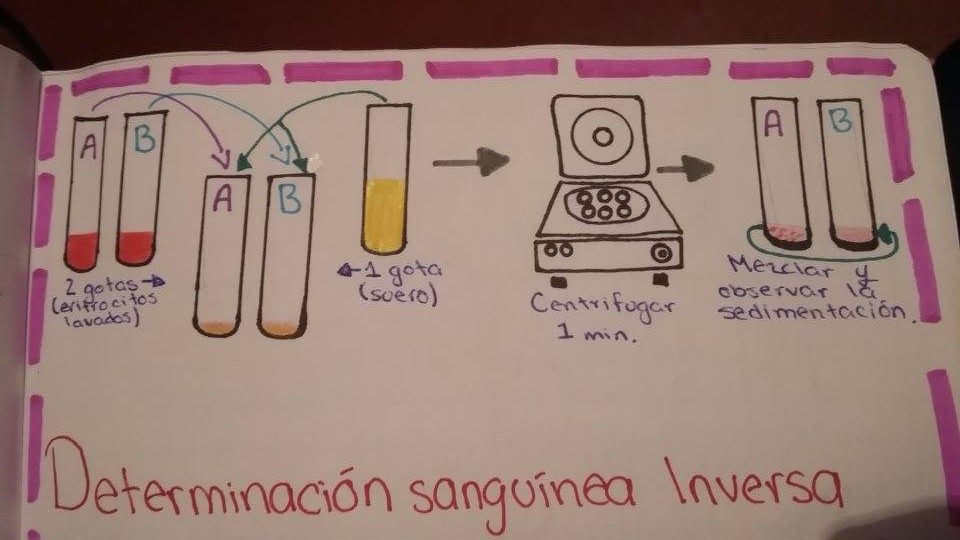 A
B
A
B
A
B
2 gotas
(eritrocitos
lavados)
1 gota
(suero)
Centrifugar
1 min.
Mezclar y
observar la
sedimentación.
Determinación sanguínea Inversa